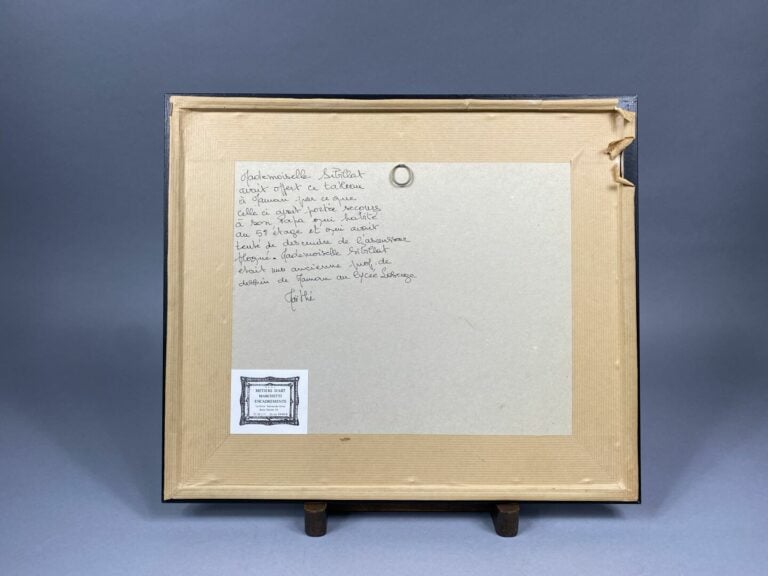 Mademoiselle Sibillat
avait offert ce tableau
à Mamou par ce que
celle ci avait portée secours
à son Papa qui habité
au 5e étage et qui avait
tenté de descendre de l'ascenseur
bloqué. Mademoiselle Sibillat
était une ancienne prof. de
dessin de Mamou au lycée
METIERS D'ART
MARCHETTI
ENCADREMENTS